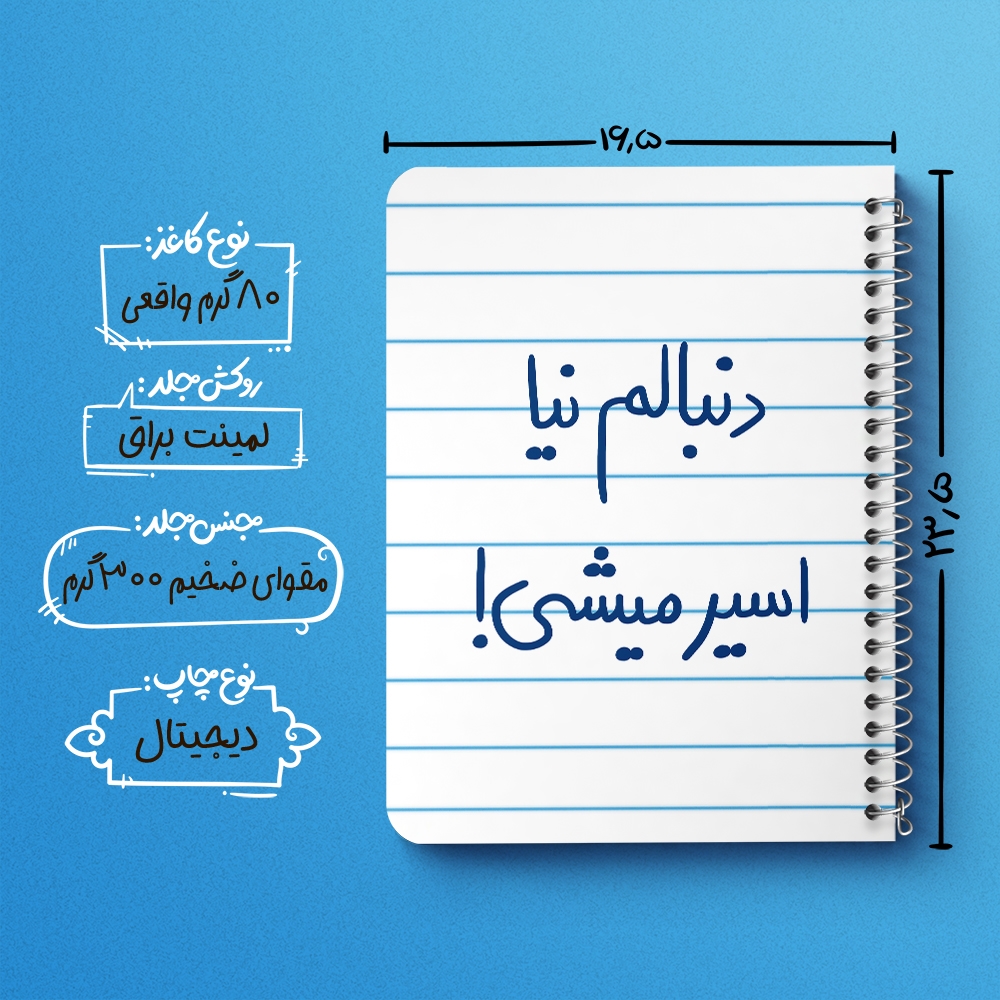 ۱۶٫۵
۲۳٫۵
دنبالم نیا
اسیر میشی!
نوع کاغذ:
۸۰ گرم واقعی
روکش جلد:
لمینت براق
جنس جلد:
مقوای ضخیم ۳۰۰ گرم
نوع چاپ:
دیجیتال